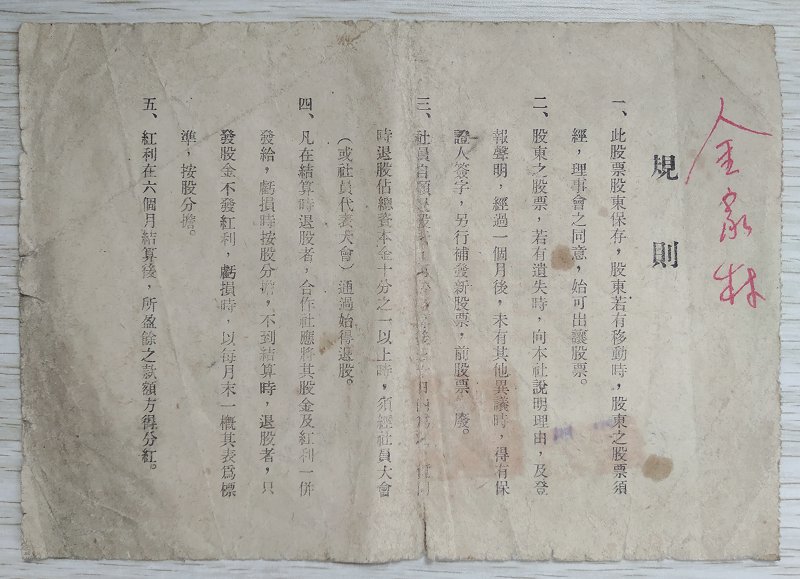 金家林
規則
一、此股票股東保存，股東若有移動時，股東之股票須
經，理事會之同意，始可出讓股票。
二、股東之股票，若有遺失時，向本社說明理由，及登
報聲明，經過一個月後，未有其他異議時，得有保
證人簽字，另行補發新股票，前股票 廢。
三、社員自願退股
時退股佔總資本金十分之一以上時，須經社員大會
（或社員代表大會）通過始得退股。
四、凡在結算時退股者，合作社應將其股金及紅利一併
發給，虧損時按股分擔，不到結算時，退股者，只
發股金不發紅利，虧損時，以每月末一概其表爲標
準，按股分擔。
五、紅利在六個月結算後，所盈餘之款額方得分紅。